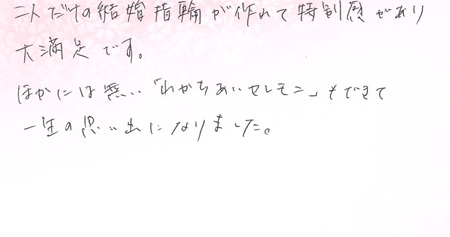 二人だけの結婚指輪が作れて特別感があり
大満足です。
ほかには無い「わかちあいセレモニー」もできて
一生の思い出になりました。